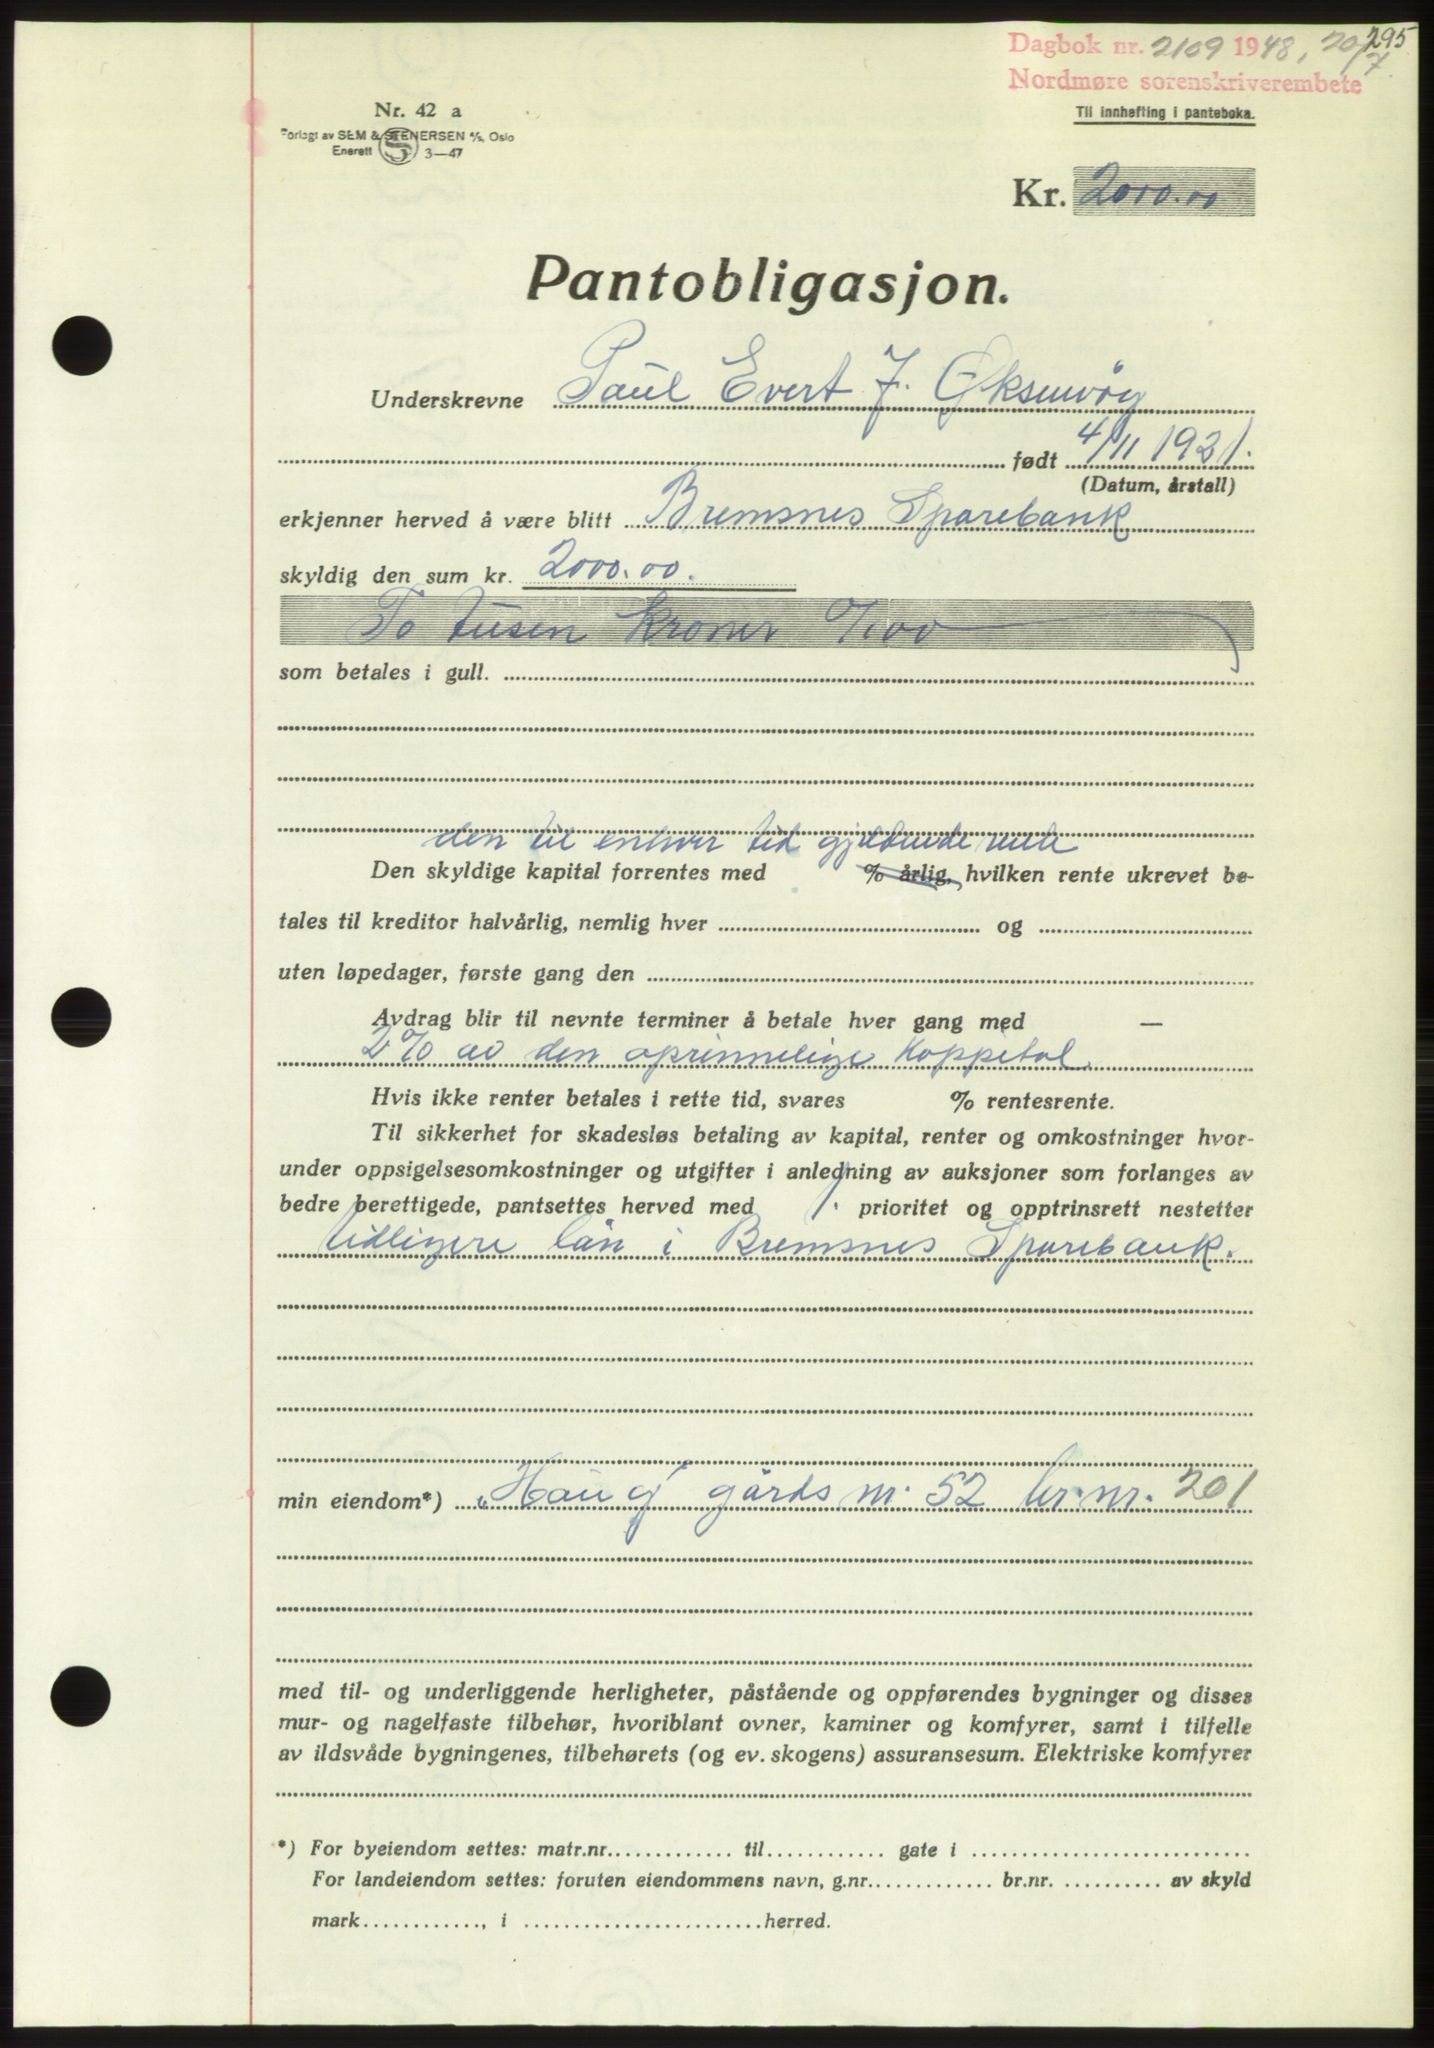 295
Dagbok nr. 2109 1948, 20/7
Nordmøre sorenskriverembete
Til innhefting i panteboka.
Nr. 42 a
Forlagt av SEM & STENERSEN A/S, Oslo
Enerett S 3—47
Kr. 2000.00
Pantobligasjon.
Underskrevne Paul Evert J. Øksenvåg
født 4/11 1921.
(Datum, årstall)
erkjenner herved å være blitt Bremsnes Sparebank
skyldig den sum kr. 2000.00.
To tusen kroner 0/100
som betales i gull.
den til enhver tid gjeldende rente
Den skyldige kapital forrentes med % årlig, hvilken rente ukrevet be-
tales til kreditor halvårlig, nemlig hver og
uten løpedager, første gang den
Avdrag blir til nevnte terminer å betale hver gang med —
2% av den oprinnelige kappetal
Hvis ikke renter betales i rette tid, svares % rentesrente.
Til sikkerhet for skadesløs betaling av kapital, renter og omkostninger hvor-
under oppsigelsesomkostninger og utgifter i anledning av auksjoner som forlanges av
bedre berettigede, pantsettes herved med 1. prioritet og opptrinsrett nestetter
tidligere lån i Bremsnes Sparebank.
min eiendom*) „Haug" gårds nr. 52 br. nr. 201
med til- og underliggende herligheter, påstående og oppførendes bygninger og disses
mur- og nagelfaste tilbehør, hvoriblant ovner, kaminer og komfyrer, samt i tilfelle
av ildsvåde bygningenes, tilbehørets (og ev. skogens) assuransesum. Elektriske komfyrer
*) For byeiendom settes: matr.nr. til gate i
For landeiendom settes: foruten eiendommens navn, g.nr. br.nr. av skyld
mark , i herred.